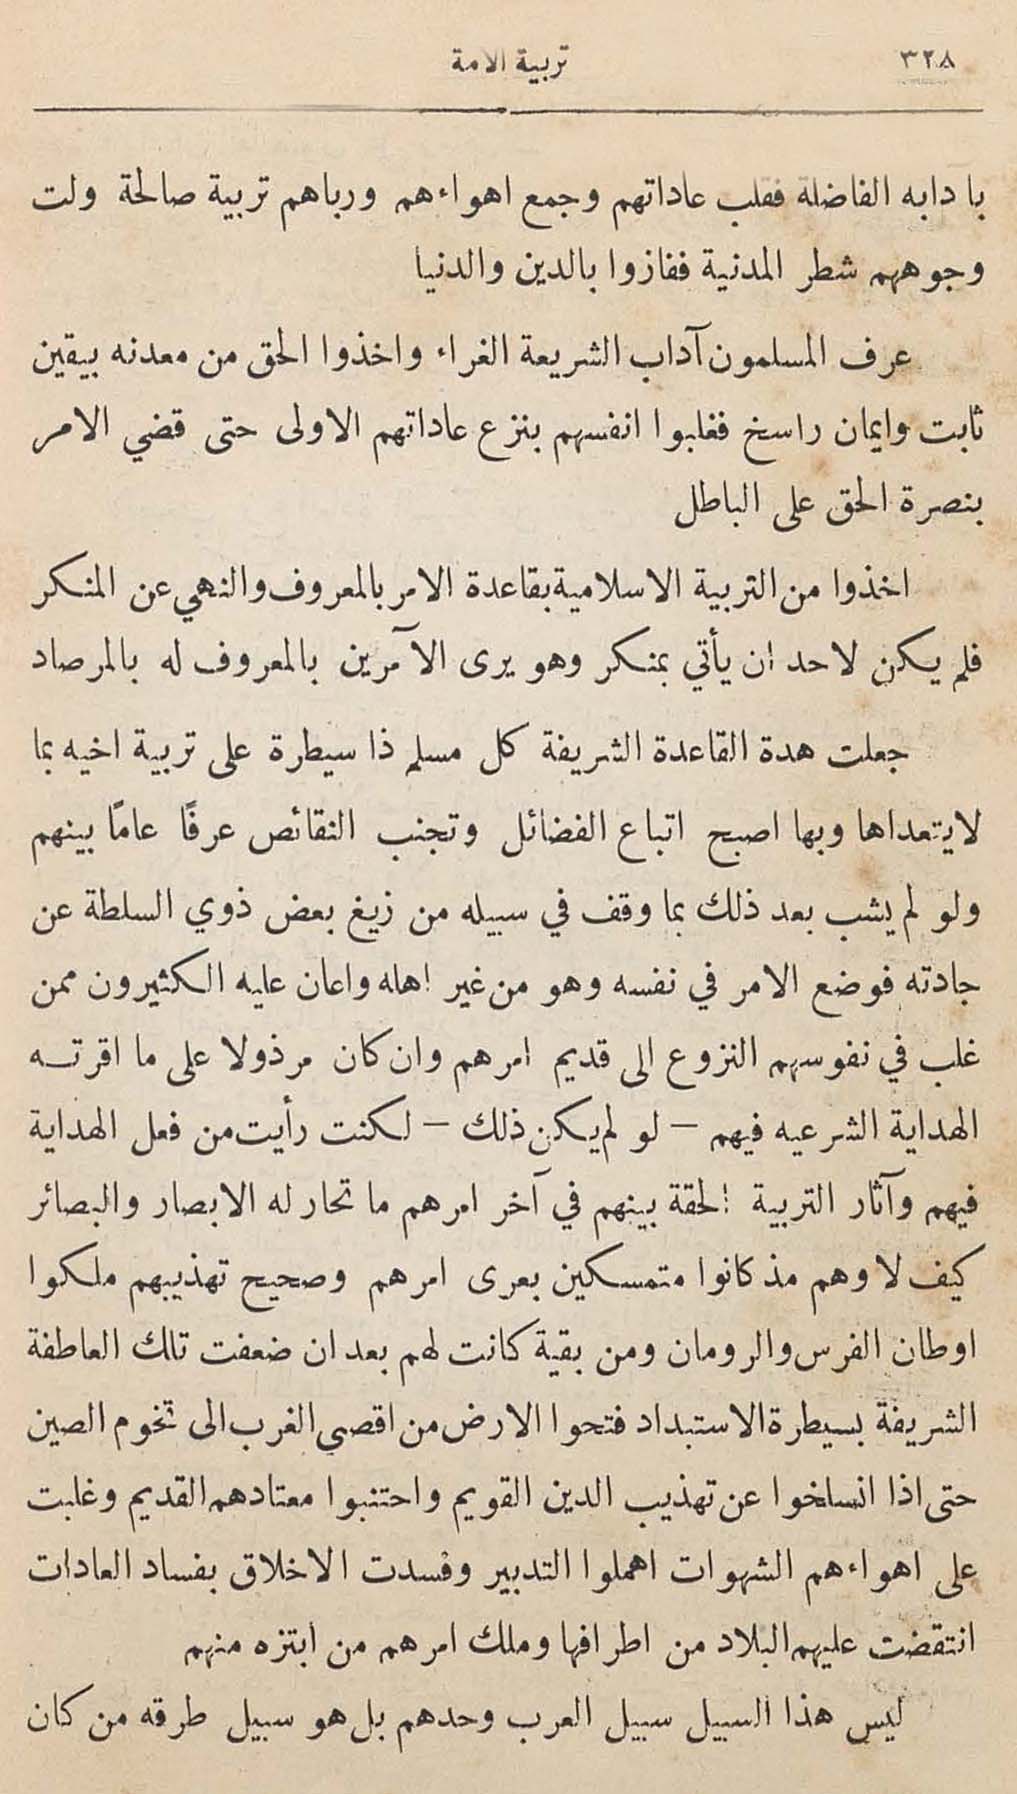 ٣٢٨
تربية الامة
بآدابه الفاضلة فقلب عاداتهم وجمع اهواءهم ورباهم تربية صالحة ولت
وجوههم شطر المدنية ففازوا بالدين والدنيا
عرف المسلمون آداب الشريعة الغراء واخذوا الحق من معدنه بيقين
ثابت وايمان راسخ فغلبوا انفسهم بنزع عاداتهم الاولى حتى قضي الامر
بنصرة الحق على الباطل
اخذوا من التربية الاسلامية بقاعدة الامر بالمعروف والنهي عن المنكر
فلم يكن لاحد ان يأتي بمنكر وهو يرى الآمرين بالمعروف له بالمرصاد
جعلت هدة القاعدة الشريفة كل مسلم ذا سيطرة على تربية اخيه بما
لا يتعداها وبها اصبح اتباع الفضائل وتجنب النقائص عرفًا عامًا بينهم
ولو لم يشب بعد ذلك بما وقف في سبيله من زيغ بعض ذوي السلطة عن
جادته فوضع الامر في نفسه وهو من غير اهله واعان عليه الكثيرون ممن
غلب في نفوسهم النزوع الى قديم امرهم وان كان مرذولا على ما اقرته
الهداية الشرعيه فيهم – لو لم يكن ذلك – لكنت رأيت من فعل الهداية
فيهم وآثار التربية الحقة بينهم في آخر امرهم ما تحار له الابصار والبصائر
كيف لا وهم مذ كانوا متمسكين بعرى امرهم وصحيح تهذيبهم ملكوا
اوطان الفرس والرومان ومن بقية كانت لهم بعد ان ضعفت تلك العاطفة
الشريفة بسيطرة الاستبداد فتحوا الارض من اقصى الغرب الى تخوم الصين
حتى اذا انسلخوا عن تهذيب الدين القويم واحتنبوا معتادهم القديم وغلبت
على اهواءهم الشهوات اهملوا التدبير وفسدت الاخلاق بفساد العادات
انتقضت عليهم البلاد من اطرافها وملك امرهم من ابتزه منهم
ليس هذا السبيل سبيل العرب وحدهم بل هو سبيل طرقه من كان